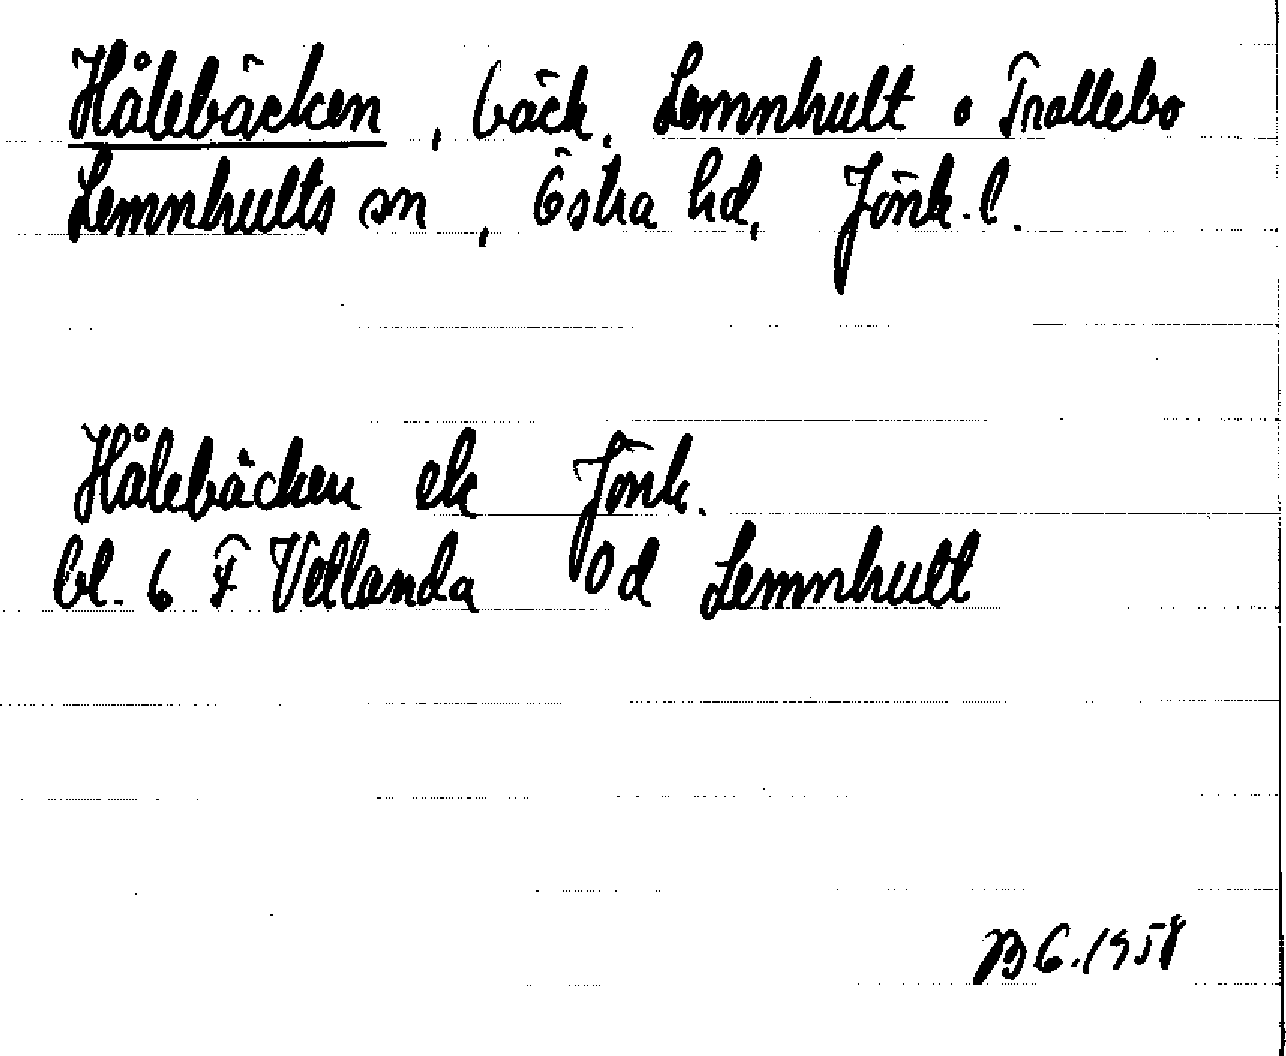 Hålebäcken, bäck. Lemnhult o Trollebo
Lemnhults sn, Östra hd, Jönk. l.
Hålebäcken ek Jönk.
bl. 6 F Vetlanda Öd Lemnhult
BG. 1958